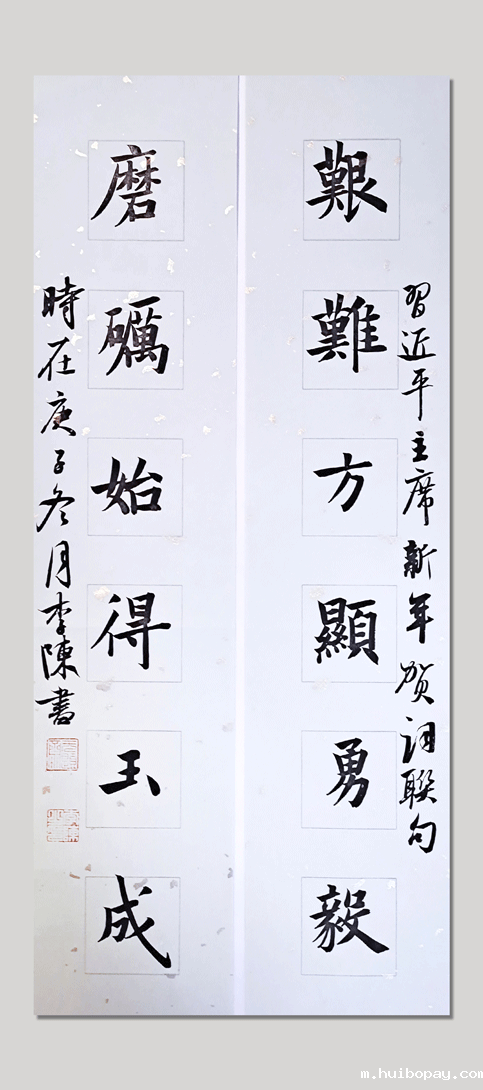 習近平主席新年贺词聯句
艱難方顯勇毅
磨礪始得玉成
時在庚子冬月李陳書
m.huibopay.com